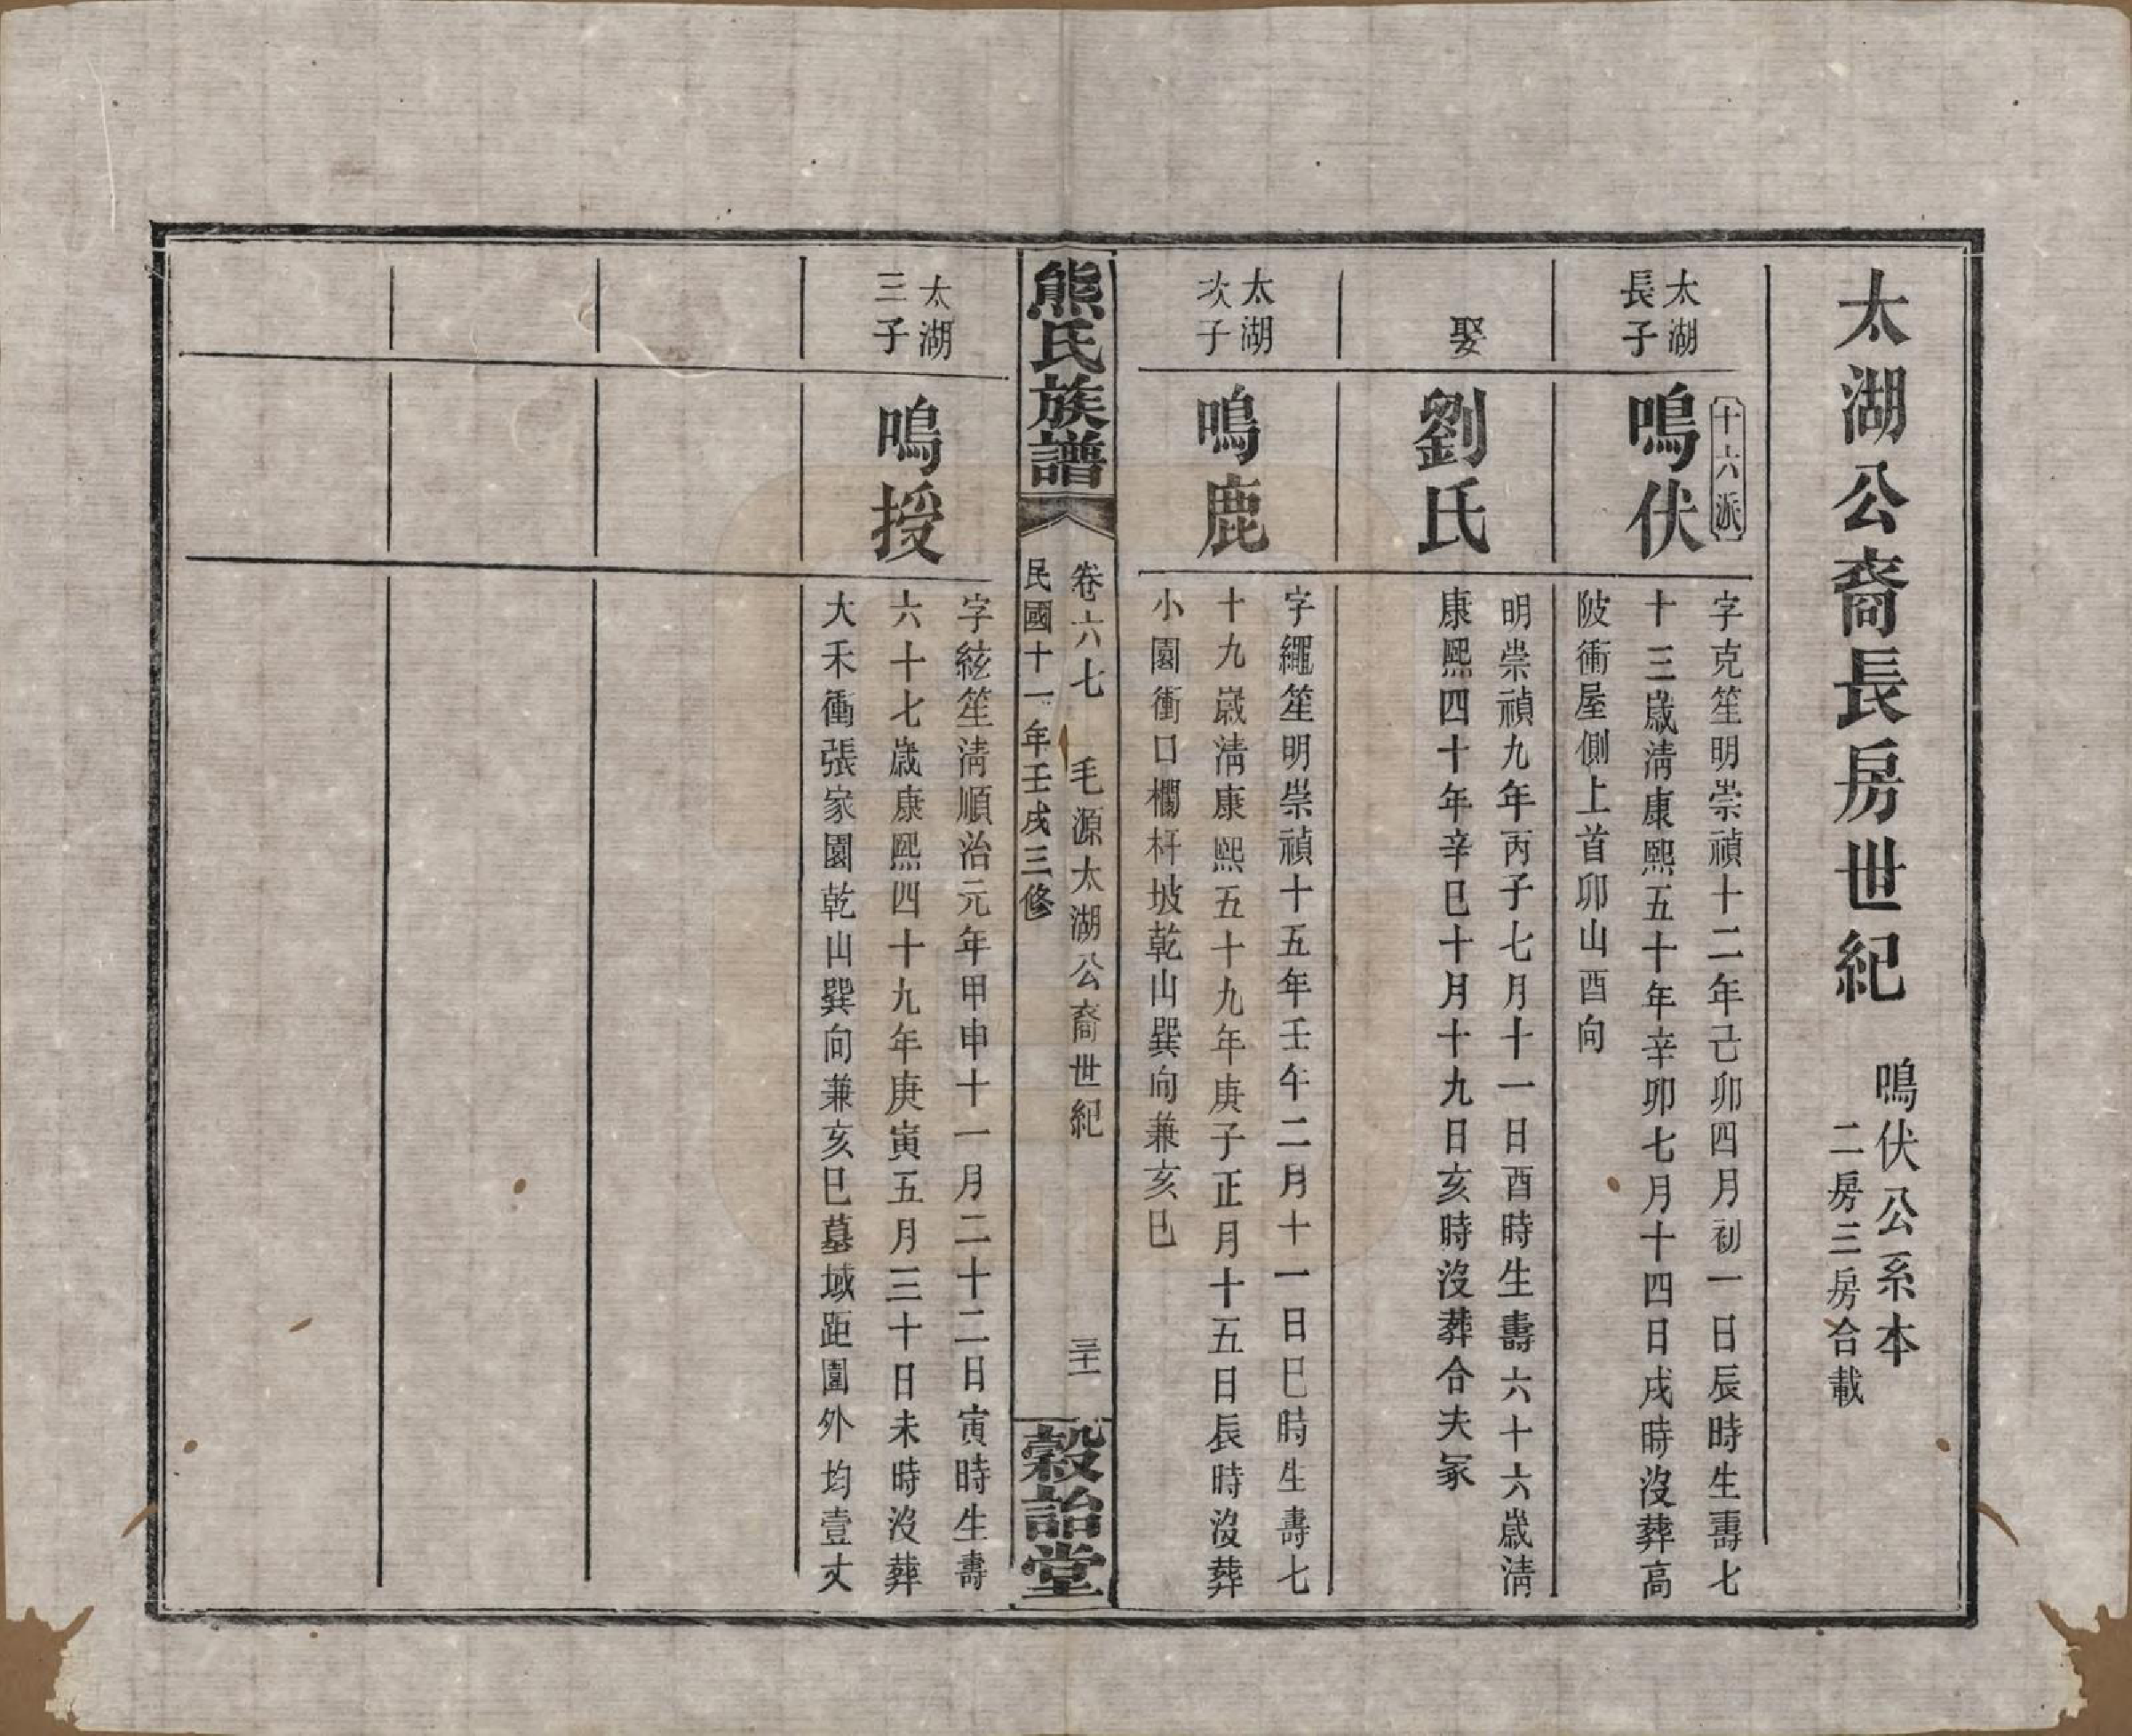 太湖公裔長房世紀
鳴伏公系本
二房三房合載
十六派
太湖
長子
鳴伏
字克笙明崇禎十二年己卯四月初一日辰時生壽七
十三歲淸康熙五十年辛卯七月十四日戌時沒葬高
陂衝屋側上首卯山酉向
娶
劉氏
明崇禎九年丙子七月十一日酉時生壽六十六歲淸
康熙四十年辛巳十月十九日亥時沒葬合夫冢
太湖
次子
鳴鹿
字繩笙明崇禎十五年壬午二月十一日巳時生壽七
十九歲淸康熙五十九年庚子正月十五日辰時沒葬
小園衝口欄杆坡乾山巽向兼亥巳
熊氏族譜
卷六七 毛源太湖公裔世紀
民國十一年壬戌三修
穀詒堂
太湖
三子
鳴授
字絃笙淸順治元年甲申十一月二十二日寅時生壽
六十七歲康熙四十九年庚寅五月三十日未時沒葬
大禾衝張家園乾山巽向兼亥巳墓域距圍外均壹丈